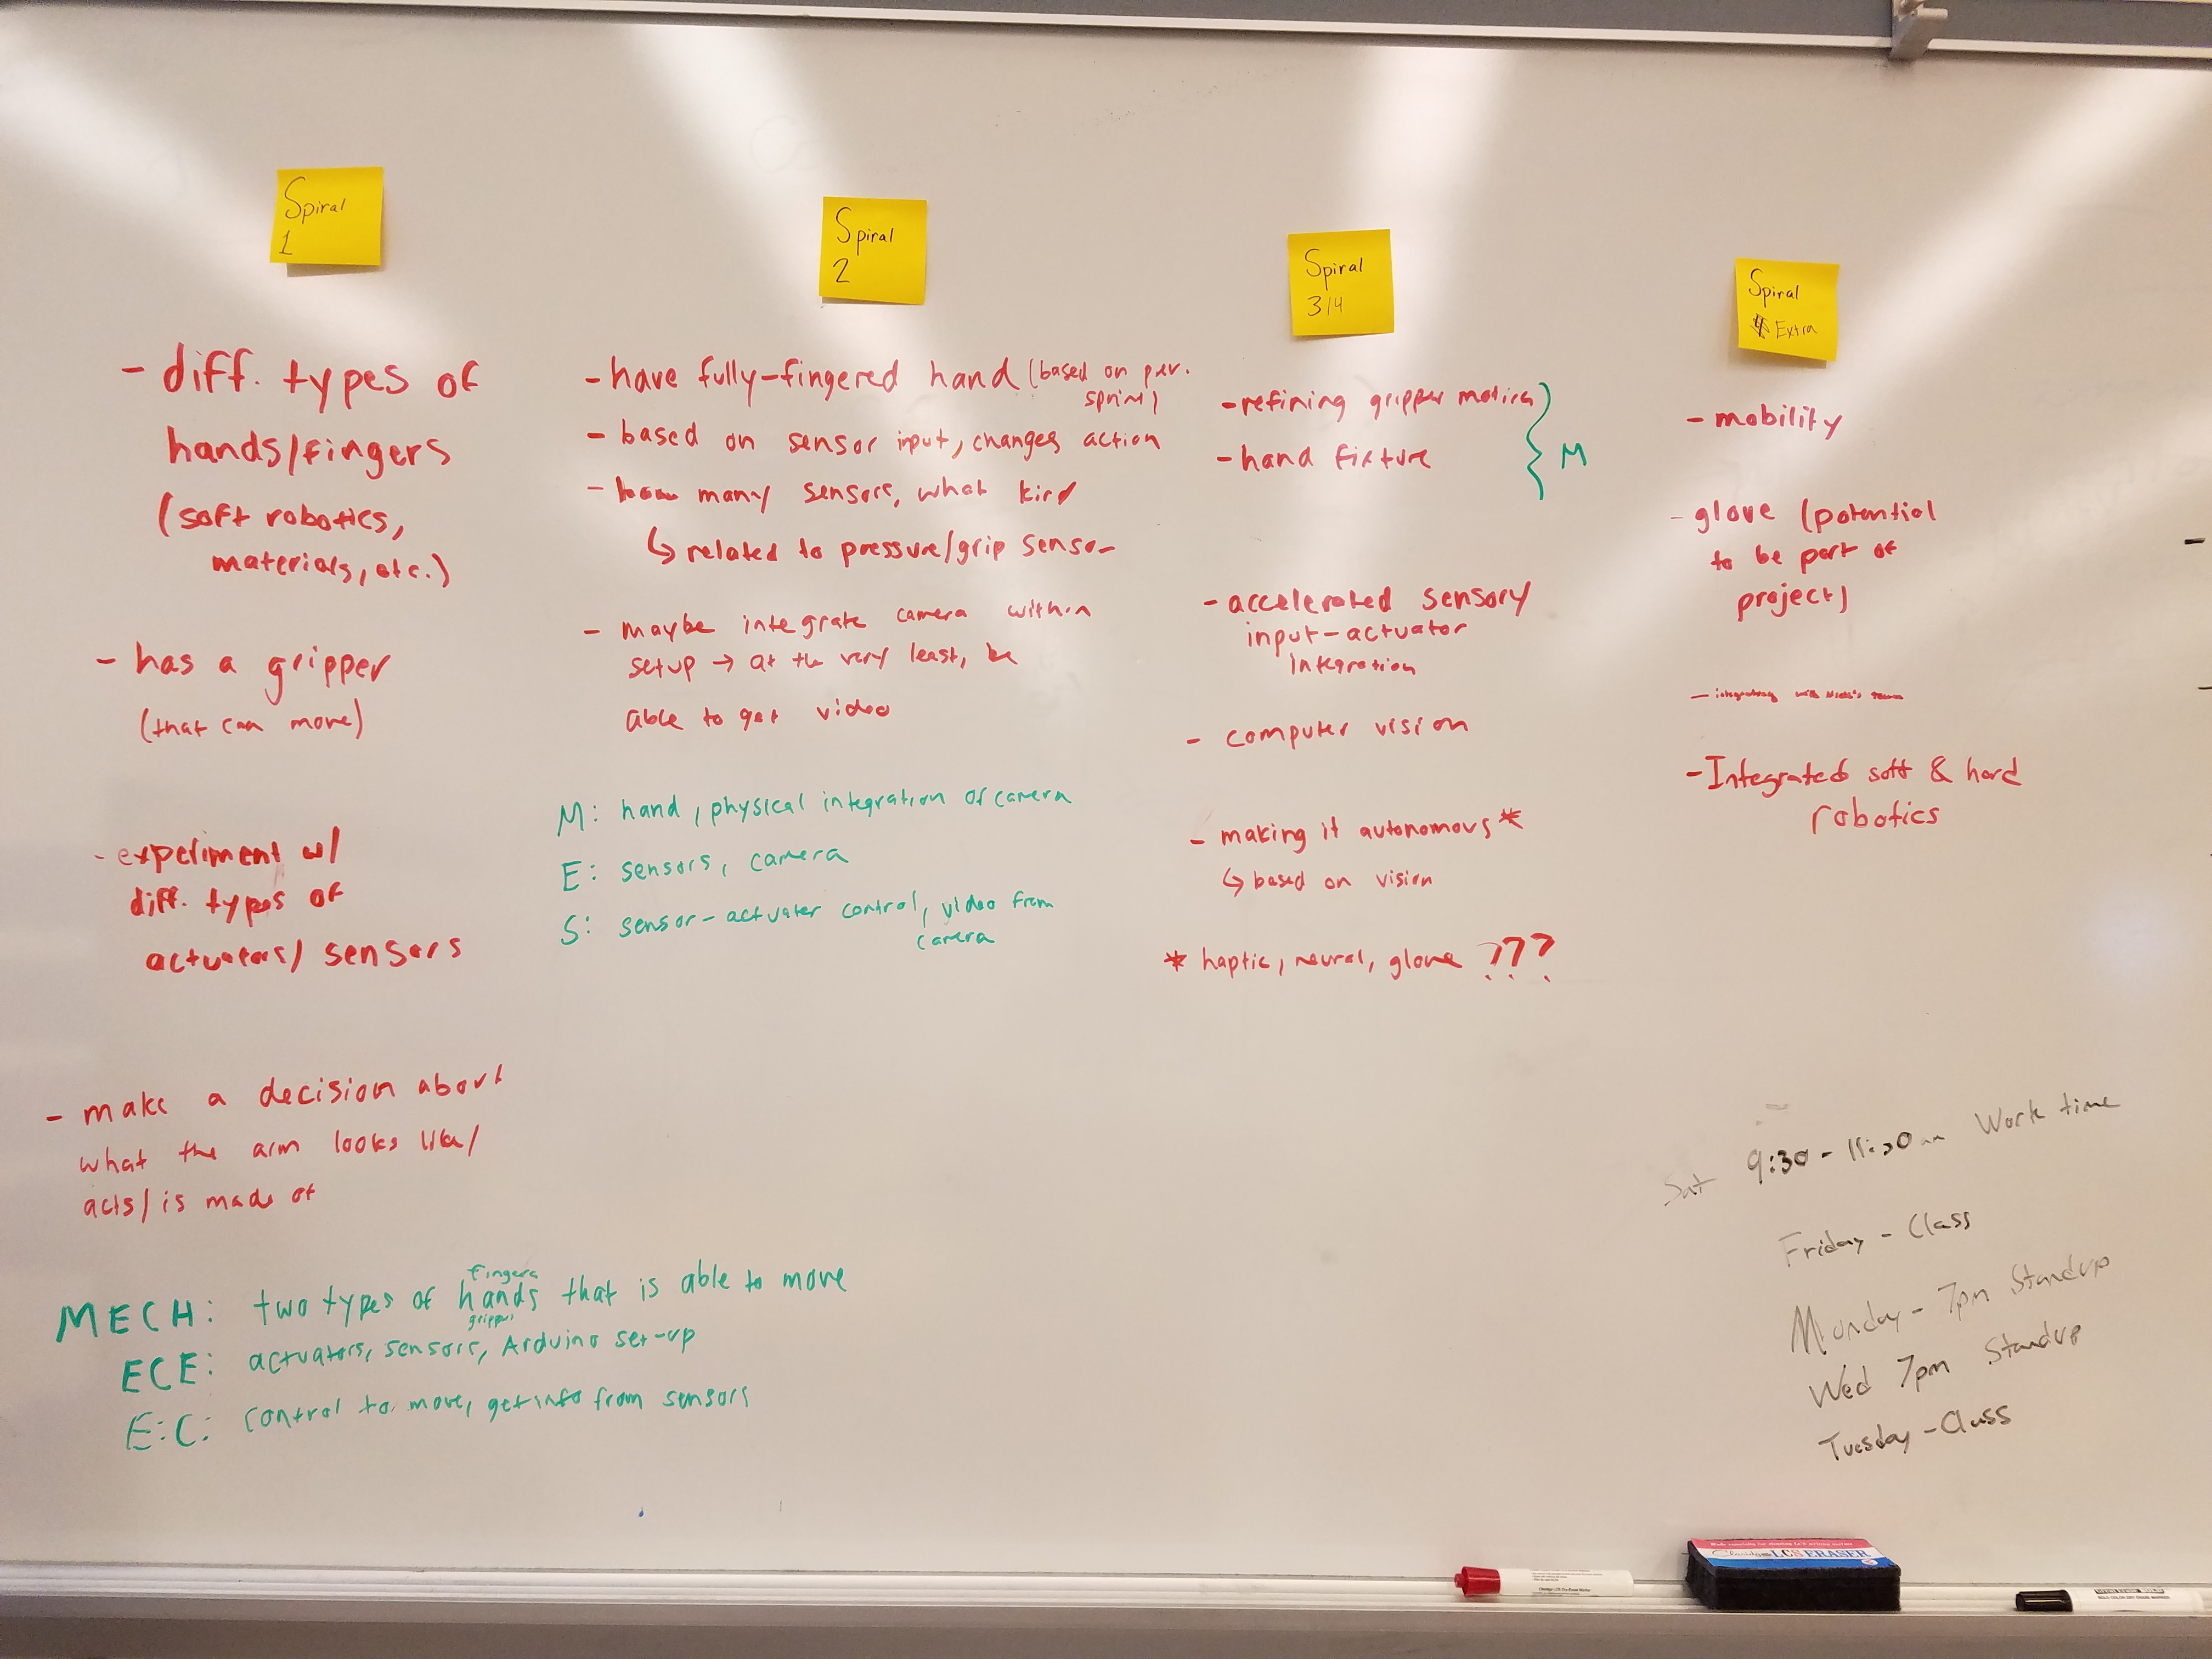 Spiral
1
- diff. types of
hands/fingers
(soft robotics,
materials, etc.)
- has a gripper
(that can move)
- experiment w/
diff. types of
actuators/ sensors
- make a decision about
what the arm looks like/
acts/ is made of
MECH: two types of hands that is able to move
fingers
gripper
ECE: actuators, sensors, Arduino set-up
E:C: control to move, get info from sensors
Spiral
2
- have fully-fingered hand (based on
sprint)
- based on sensor input, changes action
- how many sensors, what kind
↳ related to pressure/grip sensor
- maybe integrate camera within
setup → at the very least, be
able to get video
M: hand, physical integration of camera
E: sensors, camera
S: sensor-actuater control, video from
camera
Spiral
3/4
- refining gripper motion
- hand fixture
M
- accelerated sensory
input-actuator
integration
- computer vision
- making it autonomous*
↳ based on vision
* haptic, neural, glove ???
Spiral
Extra
- mobility
- glove (potential
to be part of
project)
- integrating with team
- Integrated soft & hard
robotics
Sat 9:30 - 11:30am Work time
Friday - Class
Monday - 7pm Standup
Wed 7pm Standup
Tuesday - Class
LCS ERASER